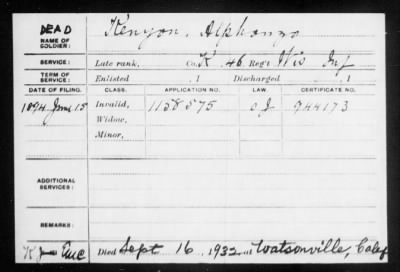 DEAD
NAME OF SOLDIER: Kenyon, Alphonzo
SERVICE: Late rank, Co. K, 46 Reg't Wis Inf
TERM OF SERVICE: Enlisted , 1 Discharged , 1
DATE OF FILING. CLASS. APPLICATION NO. LAW. CERTIFICATE NO.
1894 June 15 Invalid, 1158575 944173
Widow,
Minor,
ADDITIONAL SERVICES:
REMARKS:
Died Sept 16, 1932 at Watsonville, Calif